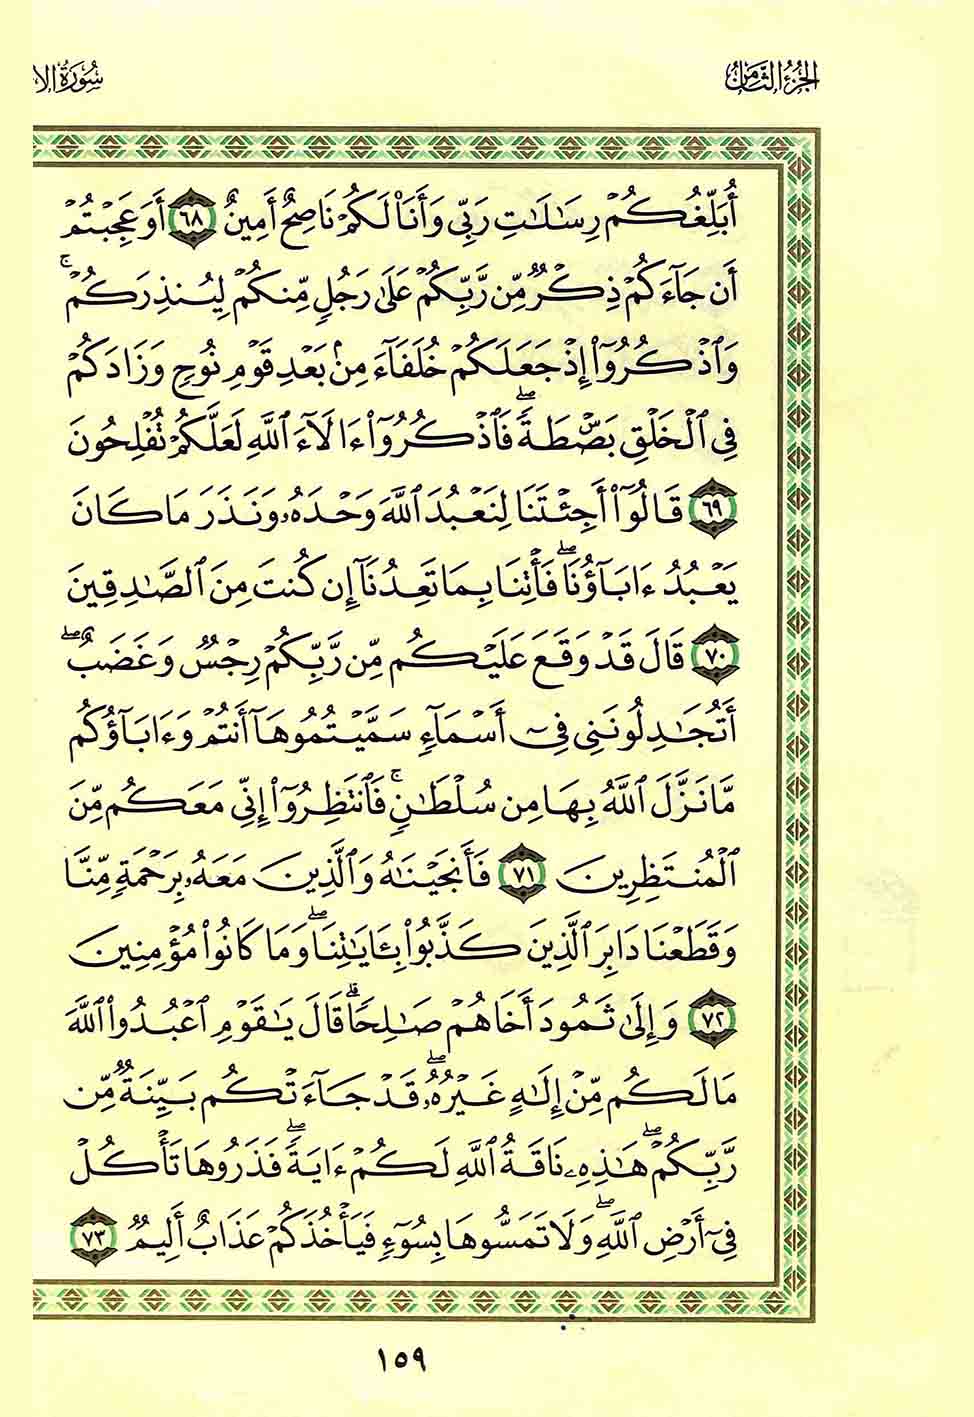 الجزء الثامن
سورة الا
أُبَلِّغُكُمْ رِسَٰلَٰتِ رَبِّي وَأَنَا۠ لَكُمْ نَاصِحٌ أَمِينٌ ٦٨ أَوَعَجِبْتُمْ
أَن جَآءَكُمْ ذِكْرٌ مِّن رَّبِّكُمْ عَلَىٰ رَجُلٍ مِّنكُمْ لِيُنذِرَكُمْ ۚ
وَٱذْكُرُوٓا۟ إِذْ جَعَلَكُمْ خُلَفَآءَ مِنۢ بَعْدِ قَوْمِ نُوحٍ وَزَادَكُمْ
فِي ٱلْخَلْقِ بَصْۜطَةً ۖ فَٱذْكُرُوٓا۟ ءَالَآءَ ٱللَّهِ لَعَلَّكُمْ تُفْلِحُونَ
٦٩ قَالُوٓا۟ أَجِئْتَنَا لِنَعْبُدَ ٱللَّهَ وَحْدَهُۥ وَنَذَرَ مَا كَانَ
يَعْبُدُ ءَابَآؤُنَا ۖ فَأْتِنَا بِمَا تَعِدُنَآ إِن كُنتَ مِنَ ٱلصَّٰدِقِينَ
٧٠ قَالَ قَدْ وَقَعَ عَلَيْكُم مِّن رَّبِّكُمْ رِجْسٌ وَغَضَبٌ ۖ
أَتُجَٰدِلُونَنِي فِيٓ أَسْمَآءٍ سَمَّيْتُمُوهَآ أَنتُمْ وَءَابَآؤُكُم
مَّا نَزَّلَ ٱللَّهُ بِهَا مِن سُلْطَٰنٍ ۚ فَٱنتَظِرُوٓا۟ إِنِّي مَعَكُم مِّنَ
ٱلْمُنتَظِرِينَ ٧١ فَأَنجَيْنَٰهُ وَٱلَّذِينَ مَعَهُۥ بِرَحْمَةٍ مِّنَّا
وَقَطَعْنَا دَابِرَ ٱلَّذِينَ كَذَّبُوا۟ بِـَٔايَٰتِنَا ۖ وَمَا كَانُوا۟ مُؤْمِنِينَ
٧٢ وَإِلَىٰ ثَمُودَ أَخَاهُمْ صَٰلِحًا ۗ قَالَ يَٰقَوْمِ ٱعْبُدُوا۟ ٱللَّهَ
مَا لَكُم مِّنْ إِلَٰهٍ غَيْرُهُۥ ۖ قَدْ جَآءَتْكُم بَيِّنَةٌ مِّن
رَّبِّكُمْ ۖ هَٰذِهِۦ نَاقَةُ ٱللَّهِ لَكُمْ ءَايَةً ۖ فَذَرُوهَا تَأْكُلْ
فِيٓ أَرْضِ ٱللَّهِ ۖ وَلَا تَمَسُّوهَا بِسُوٓءٍ فَيَأْخُذَكُمْ عَذَابٌ أَلِيمٌ ٧٣
١٥٩